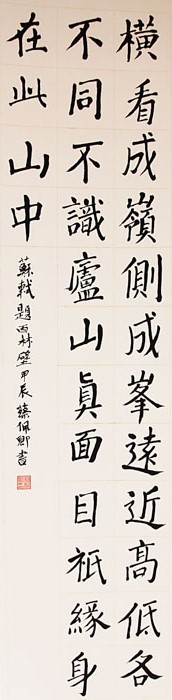 橫看成嶺側成峯遠近高低各
不同不識廬山真面目祇緣身
在此山中
蘇軾題西林壁甲辰蔡佩卿書